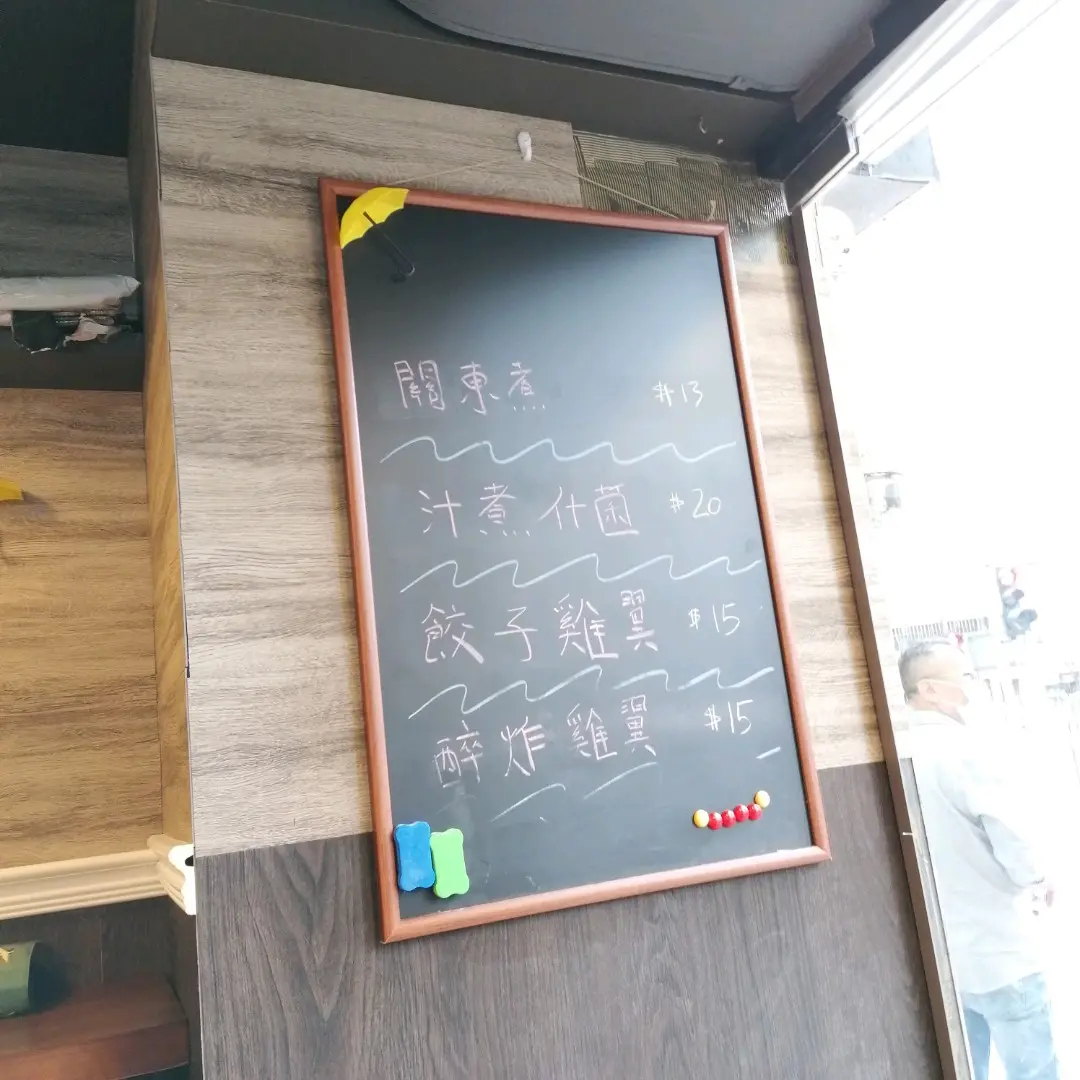 關東煮 $13
汁煮什菌 $20
餃子雞翼 $15
醉炸雞翼 $15